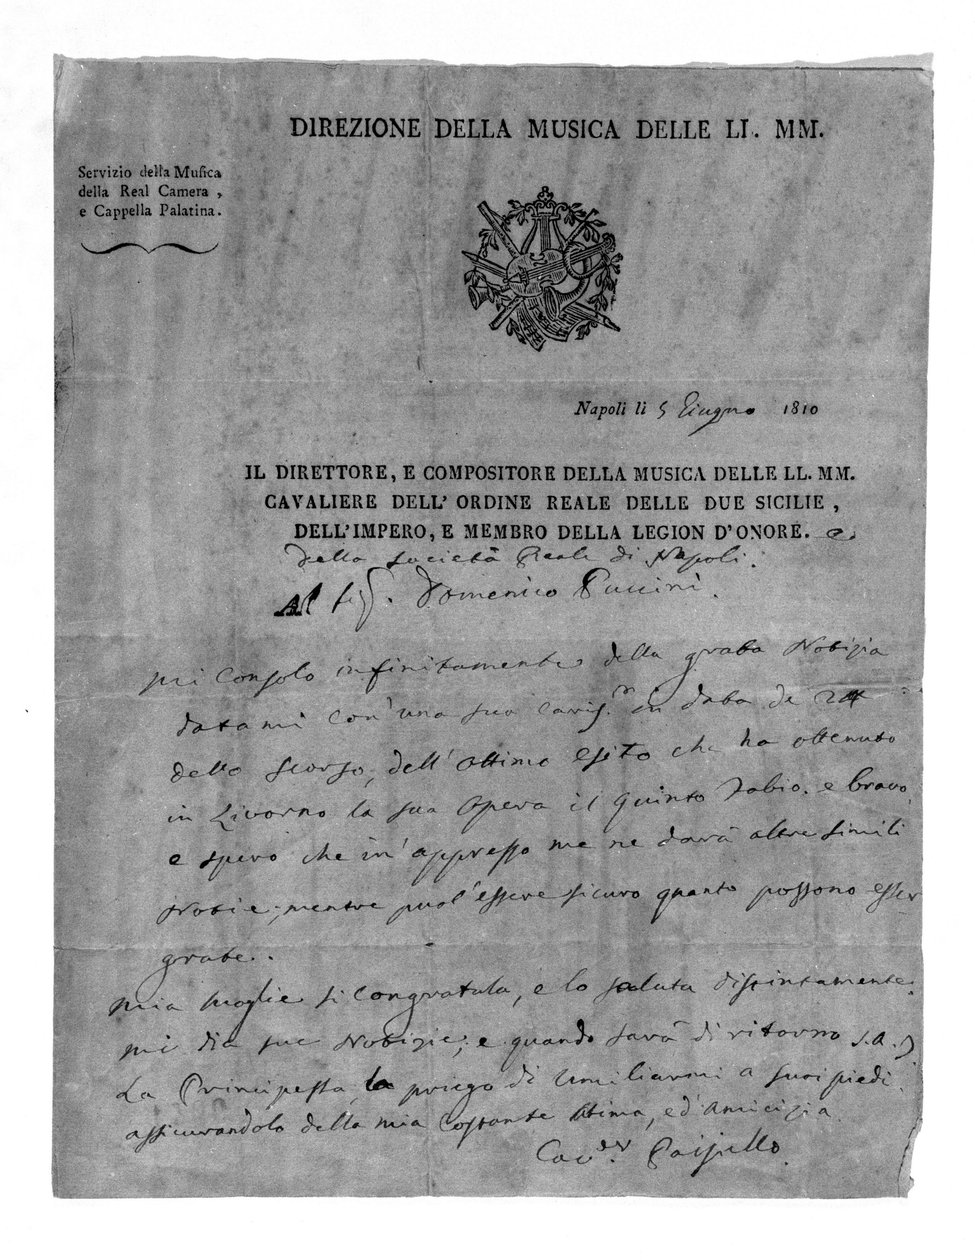 DIREZIONE DELLA MUSICA DELLE LL. MM.
Servizio della Musica
della Real Camera,
e Cappella Palatina.
Napoli li 5 Giugno 1810
IL DIRETTORE, E COMPOSITORE DELLA MUSICA DELLE LL. MM.
CAVALIERE DELL' ORDINE REALE DELLE DUE SICILIE,
DELL'IMPERO, E MEMBRO DELLA LEGION D'ONORE. e
della Società Reale di Napoli.
Al Sig. Domenico Puccini.
Mi consolo infinitamente della grata Notizia
datami con' una sua caris.ᵐ in data de 24
dello scorso, dell' ottimo esito che ha ottenuto
in Livorno la sua Opera il Quinto Fabio. e bravo,
e spero che in' appresso me ne darà altre simili
Notie; mentre puol'essere sicuro quanto possono esser
grate..
Mia moglie si congratula, e lo saluta distintamente.
Mi dia sue Notizie; e quando sarà di ritorno S.A.
La Principessa, la priego di umiliarmi a suoi piedi.
assicurandola della mia costante stima, ed' Amicizia
Cav.ᵉʳ Paisiello.